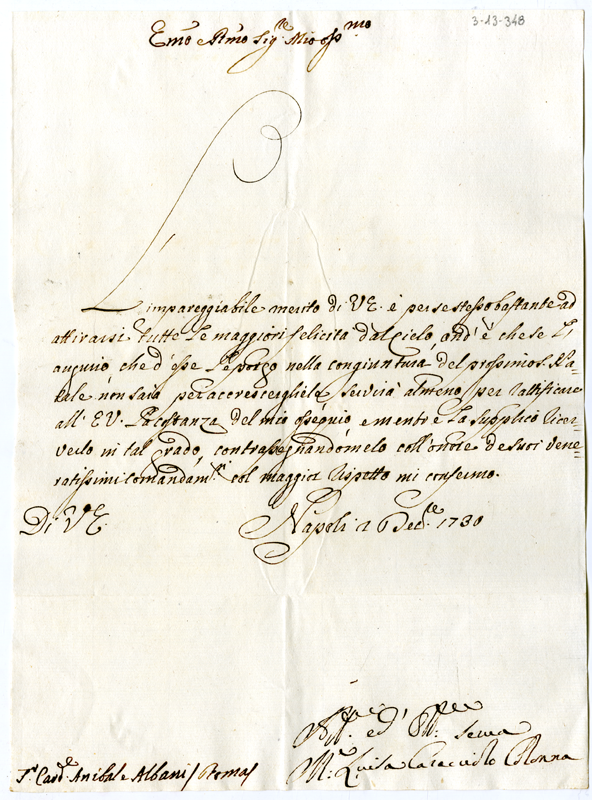 3-13-348
Emo e Rmo Sig.re Mio oss.mo
L'impareggiabile merito di V.E. è per se stesso bastante ad
attirarsi tutte le maggiori felicita dal Cielo, ond' è che se l'
augurio che d'esse Le porgo nella congiuntura del prossimo S. Na=
tale non sarà per accrescergliele servirà almeno per rattificare
all' E.V. La costanza del mio ossequio e mentre La supplico ricer=
verlo in tal grado, contrasegnandomelo coll' onore de suoi vene=
ratissimi comandam.ti col maggior rispetto mi confermo.
Di V.E. Napoli 16 Dec.re 1730
ed serva
M.a Luisa Caracciolo Colonna
S.r Card.e Anibale Albani / Roma /